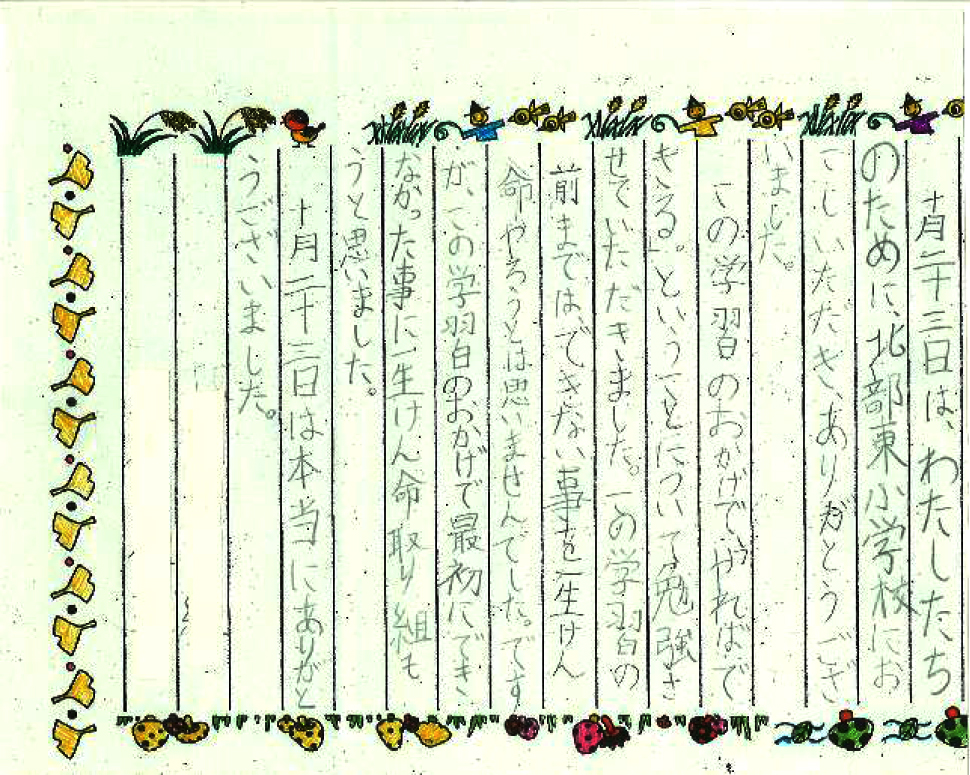 十月二十三日は、わたしたち
のために、北部東小学校にお
こしいただき、ありがとうござ
いました。
この学習のおかげで、「やればで
きる。」ということについて勉強さ
せていただきました。この学習の
前まではできない事を一生けん
命やろうとは思いませんでした。です
が、この学習のおかげで最初にでき
なかった事に一生けん命取り組も
うと思いました。
十月二十三日は本当にありがと
うございました。